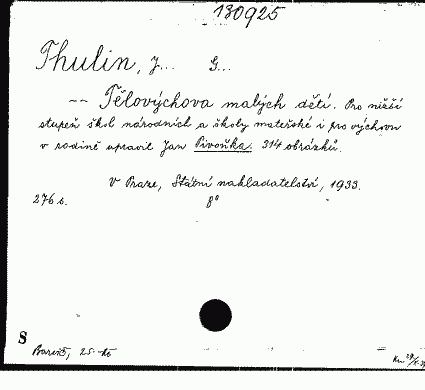 130925
Thulin, J... G...
-- Tělovýchova malých dětí. Pro nižší
stupeň škol národních a školy mateřské i pro výchovu
v rodině upravil Jan Pivoňka. 314 obrázků.
V Praze, Státní nakladatelství, 1933.
276 s. 8°
S
25